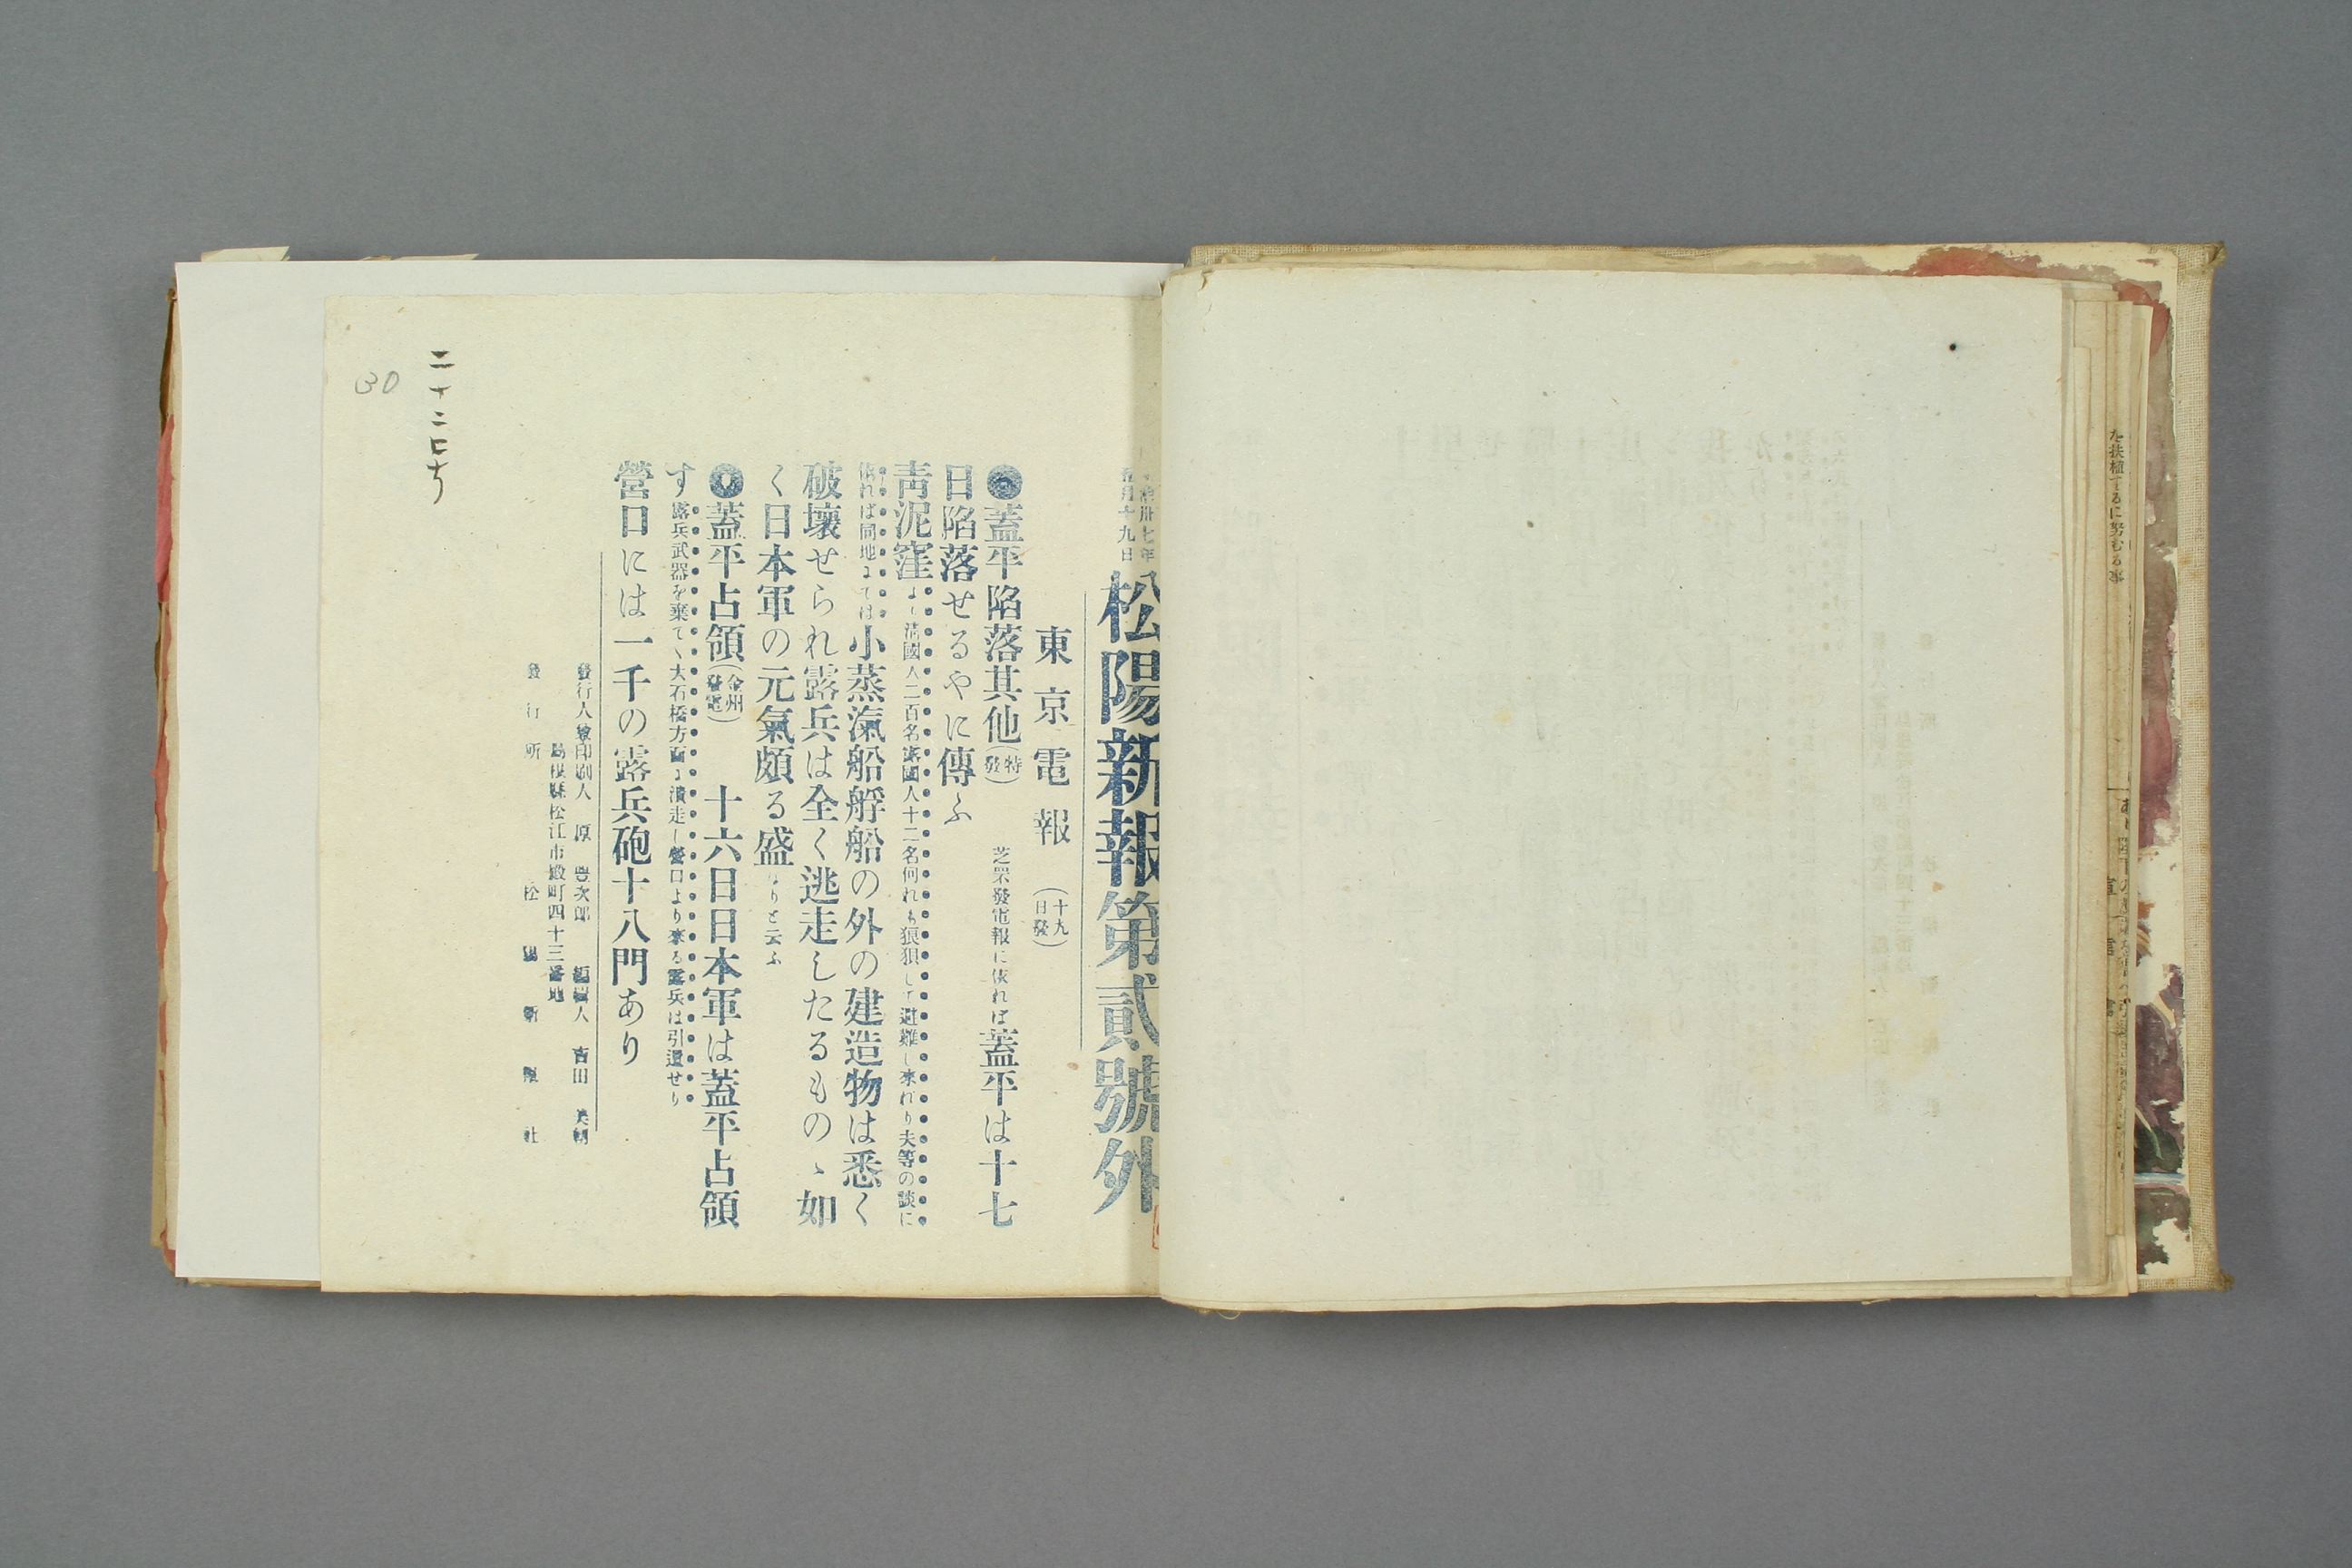 明治卅七年
五月十九日
松陽新報第貳號外
東京電報（十九日發）
◉蓋平陷落其他（特發）　芝罘發電報に依れば蓋平は十七
日陷落せるやに傳ふ
靑泥窪より淸國人二百名露國人十二名何れも狼狽して避難し來れり夫等の談に
依れば同地にては小蒸滊船艀船の外の建造物は悉く
破壞せられ露兵は全く逃走したるものゝ如
く日本軍の元氣頗る盛なりと云ふ
◉蓋平占領（金州發電）　十六日日本軍は蓋平占領
す露兵武器を棄てゝ大石橋方面に潰走し營口より來る露兵は引還せり
營口には一千の露兵砲十八門あり
發行人兼印刷人　原　豐次郎　編輯人　吉田　美朝
島根縣松江市殿町四十三番地
發行所　松陽新報社
30
を扶植するに努むる事